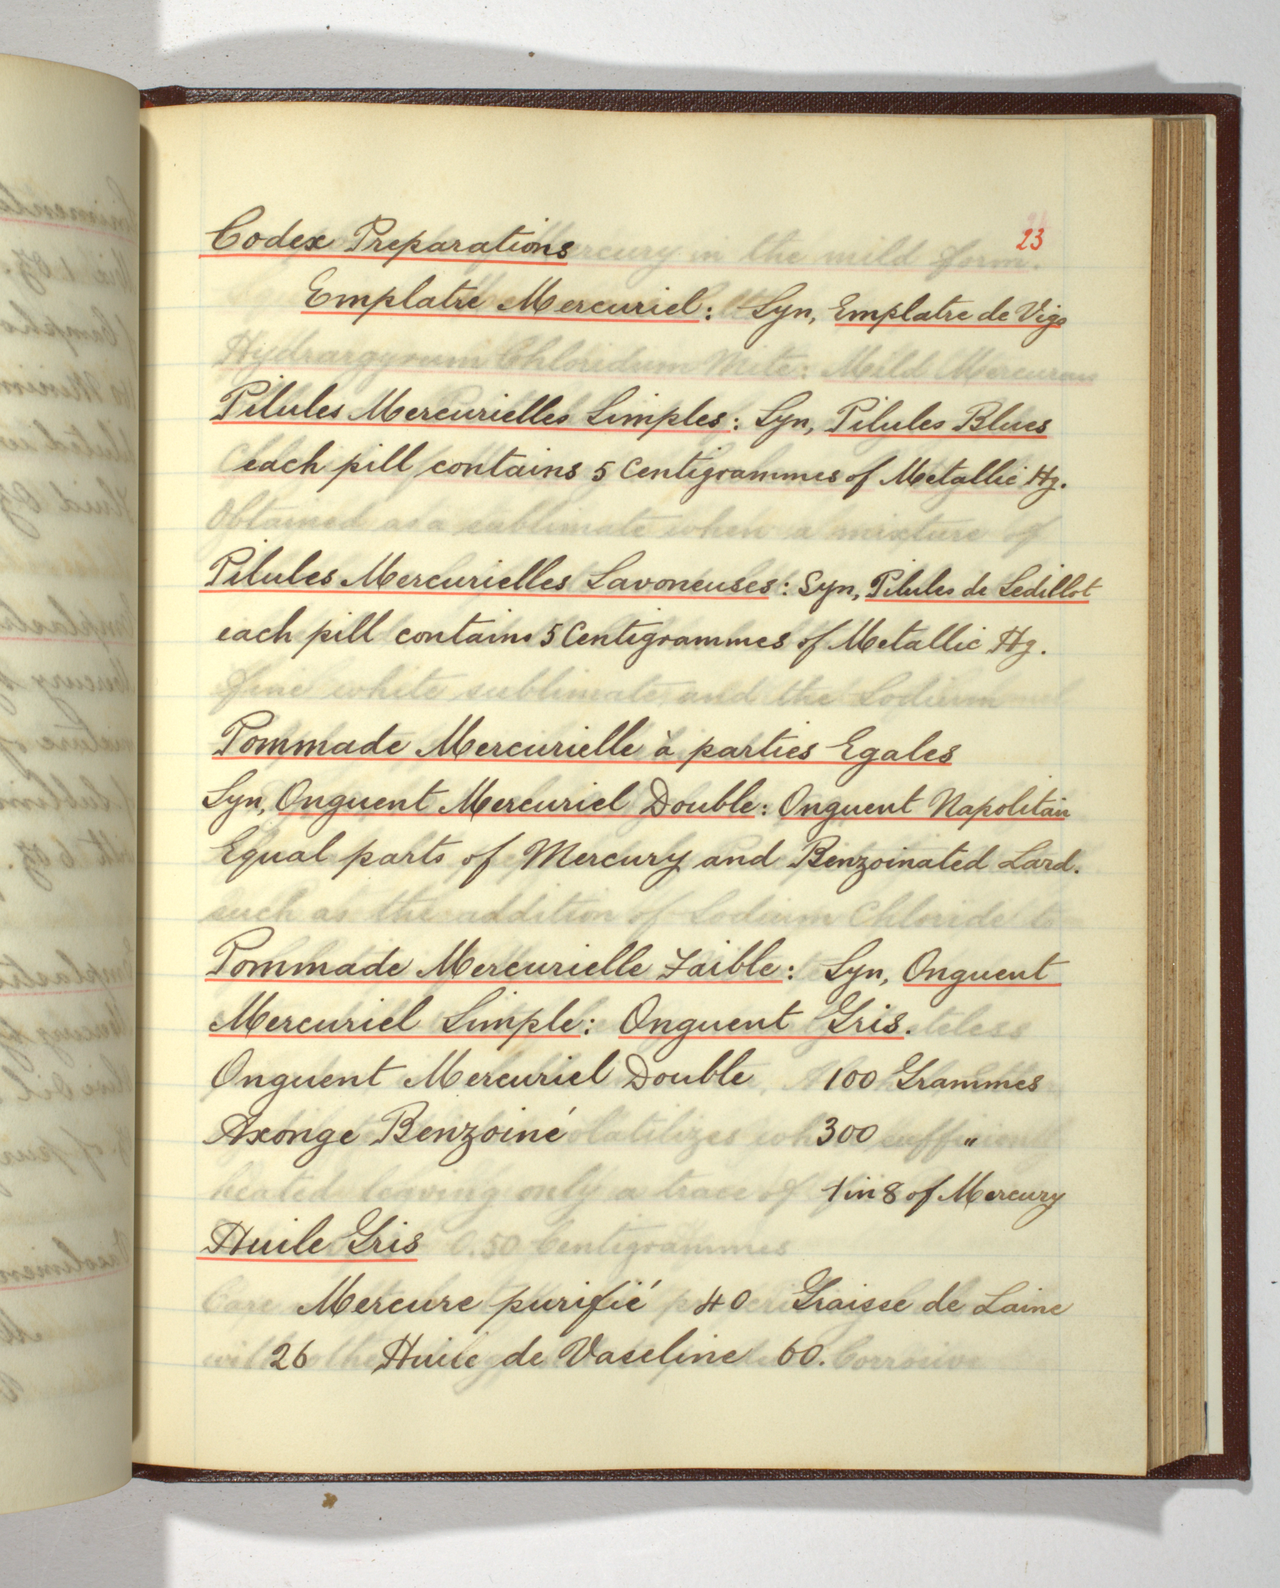 23
Codex Preparations
Emplatre Mercuriel: Syn, Emplatre de Vigo
Pilules Mercurielles Simples: Syn, Pilules Blues
each pill contains 5 Centigrammes of Metallic Hg.
Pilules Mercurielles Savoneuses: Syn, Pilules de Sedillot
each pill contains 5 Centigrammes of Metallic Hg.
Pommade Mercurielle à parties Egales
Syn, Onguent Mercuriel Double: Onguent Napolitain
Equal parts of Mercury and Benzoinated Lard.
Pommade Mercurielle Faible: Syn, Onguent
Mercuriel Simple: Onguent Gris.
Onguent Mercuriel Double 100 Grammes
Axonge Benzoiné 300 "
1 in 8 of Mercury
Huile Gris
Mercure purifié 40 Graisse de Laine
26 Huile de Vaseline 60.